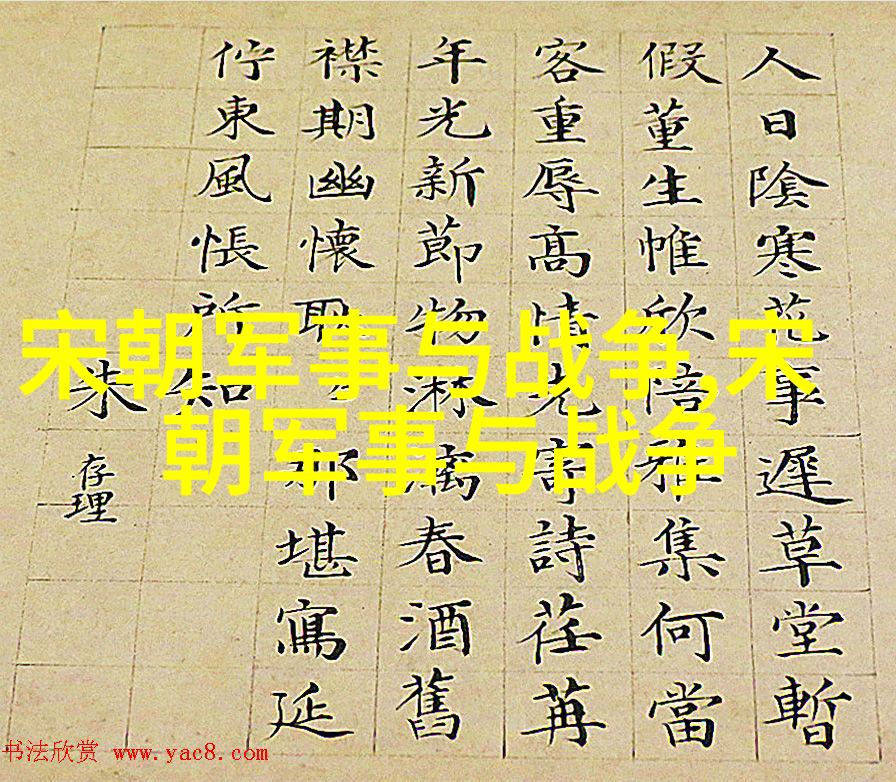 人日陰寒花事遲草堂暫
假董生帷欣陪雅集何當
客重辱高情先寄詩荏苒
年光新節物淋漓春酒舊
襟期幽懷耿々那堪寫延
佇東風悵所知
朱存理
宋朝军事与战争,宋
朝军事与战争
书法欣赏 www.yac8.com